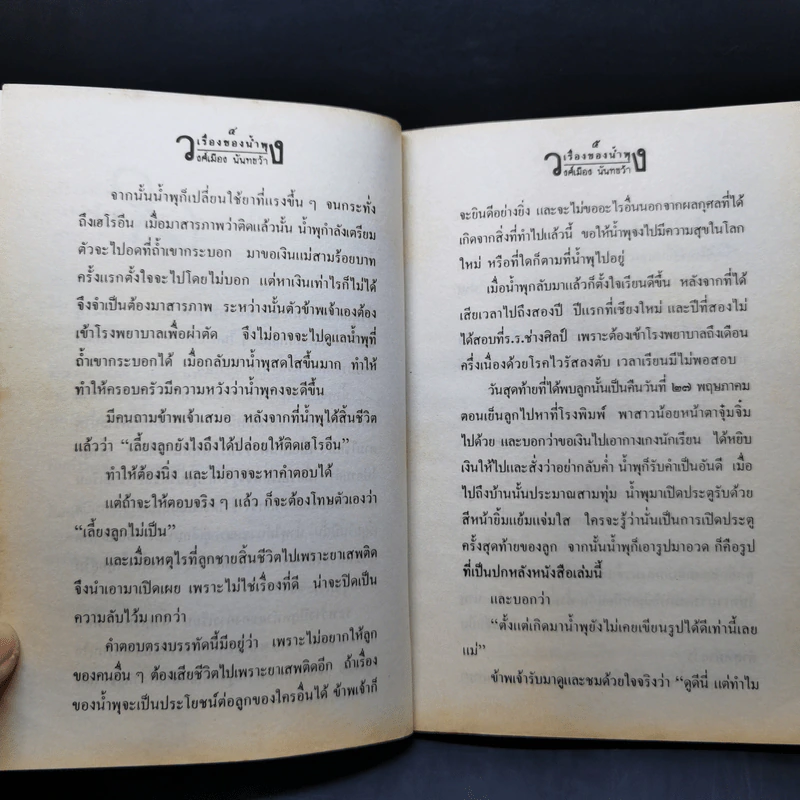 เรื่องของน้ำพุ
วงศ์เมือง นันทขว้าง
จากนั้นน้ำพุก็เปลี่ยนใช้ยาที่แรงขึ้น ๆ จนกระทั่ง
ถึงเฮโรอีน เมื่อมาสารภาพว่าติดแล้วนั้น น้ำพุกำลังเตรียม
ตัวจะไปอดที่ถ้ำเขากระบอก มาขอเงินแม่สามร้อยบาท
ครั้งแรกตั้งใจจะไปโดยไม่บอก แต่หาเงินเท่าไรก็ไม่ได้
จึงจำเป็นต้องมาสารภาพ ระหว่างนั้นตัวข้าพเจ้าเองต้อง
เข้าโรงพยาบาลเพื่อผ่าตัด จึงไม่อาจจะไปดูแลน้ำพุที่
ถ้ำเขากระบอกได้ เมื่อกลับมาน้ำพุสดใสขึ้นมาก ทำให้
ทำให้ครอบครัวมีความหวังว่าน้ำพุคงจะดีขึ้น
มีคนถามข้าพเจ้าเสมอ หลังจากที่น้ำพุได้สิ้นชีวิต
แล้วว่า “เลี้ยงลูกยังไงถึงได้ปล่อยให้ติดเฮโรอีน”
ทำให้ต้องนิ่ง และไม่อาจจะหาคำตอบได้
แต่ถ้าจะให้ตอบจริง ๆ แล้ว ก็จะต้องโทษตัวเองว่า
“เลี้ยงลูกไม่เป็น”
และเมื่อเหตุไรที่ลูกชายสิ้นชีวิตไปเพราะยาเสพติด
จึงนำเอามาเปิดเผย เพราะไม่ใช่เรื่องที่ดี น่าจะปิดเป็น
ความลับไว้มากกว่า
คำตอบตรงบรรทัดนี้มีอยู่ว่า เพราะไม่อยากให้ลูก
ของคนอื่น ๆ ต้องเสียชีวิตไปเพราะยาเสพติดอีก ถ้าเรื่อง
ของน้ำพุจะเป็นประโยชน์ต่อลูกของใครอื่นได้ ข้าพเจ้าก็
เรื่องของน้ำพุ
วงศ์เมือง นันทขว้าง
จะยินดีอย่างยิ่ง และจะไม่ขออะไรอื่นนอกจากผลกุศลที่ได้
เกิดจากสิ่งที่ทำไปแล้วนี้ ขอให้น้ำพุจงไปมีความสุขในโลก
ใหม่ หรือที่ใดก็ตามที่น้ำพุไปอยู่
เมื่อน้ำพุกลับมาแล้วก็ตั้งใจเรียนดีขึ้น หลังจากที่ได้
เสียเวลาไปถึงสองปี ปีแรกที่เชียงใหม่ และปีที่สองไม่
ได้สอบที่ร.ร.ช่างศิลป์ เพราะต้องเข้าโรงพยาบาลถึงเดือน
ครึ่งเนื่องด้วยโรคไวรัสลงตับ เวลาเรียนมีไม่พอสอบ
วันสุดท้ายที่ได้พบลูกนั้นเป็นคืนวันที่ ๒๗ พฤษภาคม
ตอนเย็นลูกไปหาที่โรงพิมพ์ พาสาวน้อยหน้าตาจุ๋มจิ๋ม
ไปด้วย และบอกว่าขอเงินไปเอากางเกงนักเรียน ได้หยิบ
เงินให้ไปและสั่งว่าอย่ากลับค่ำ น้ำพุก็รับคำเป็นอันดี เมื่อ
ไปถึงบ้านนั้นประมาณสามทุ่ม น้ำพุมาเปิดประตูรับด้วย
สีหน้ายิ้มแย้มแจ่มใส ใครจะรู้ว่านั่นเป็นการเปิดประตู
ครั้งสุดท้ายของลูก จากนั้นน้ำพุก็เอารูปมาอวด ก็คือรูป
ที่เป็นปกหลังหนังสือเล่มนี้
และบอกว่า
“ตั้งแต่เกิดมาน้ำพุยังไม่เคยเขียนรูปได้ดีเท่านี้เลย
แม่”
ข้าพเจ้ารับมาดูและชมด้วยใจจริงว่า “ดูดีนี่ แต่ทำไม